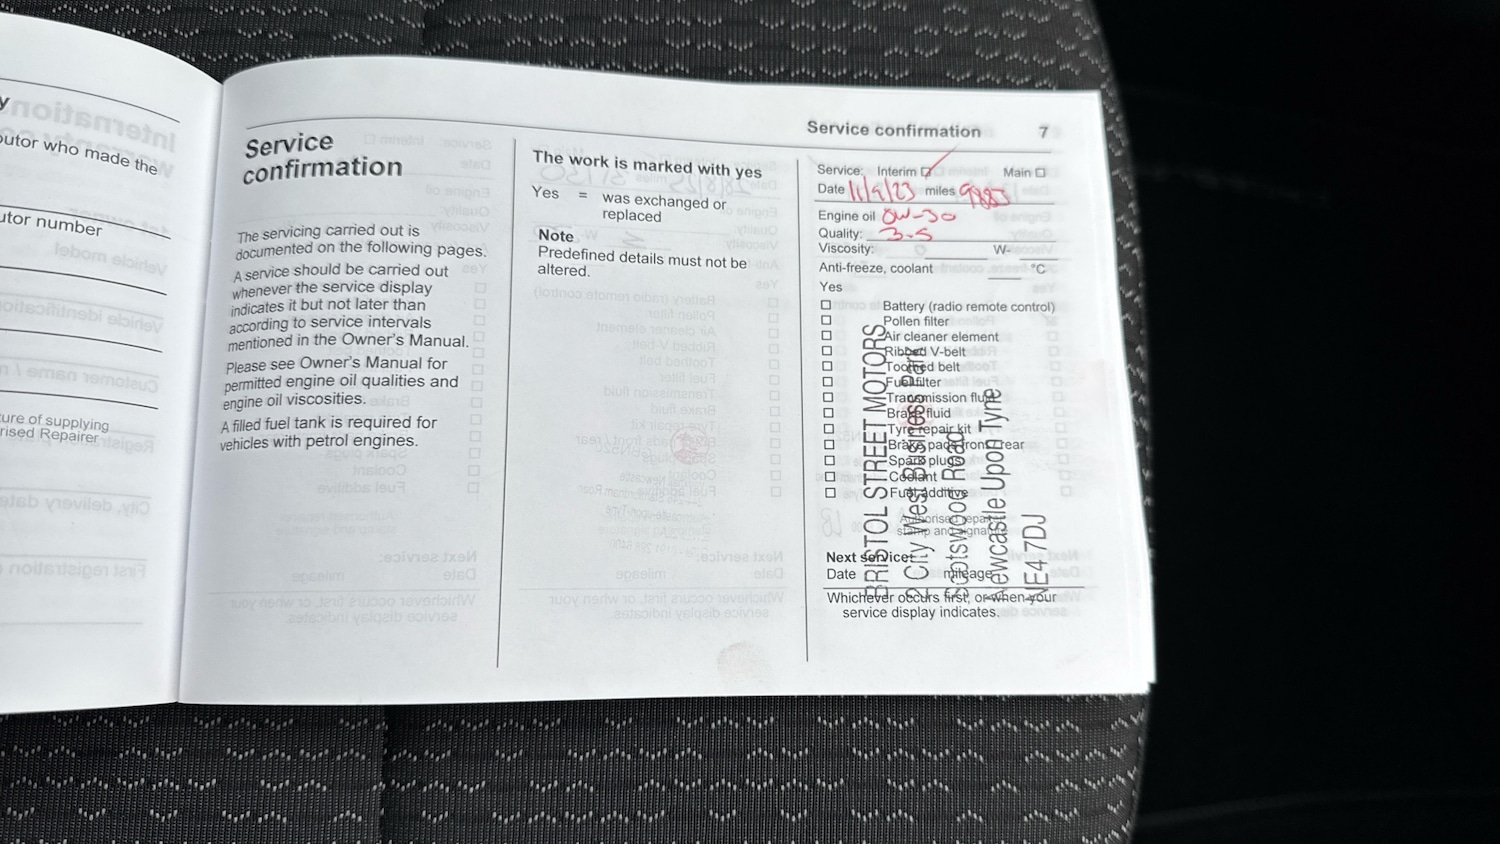 y
outor who made the
utor number
ure of supplying
rised Repairer
Service
confirmation
The servicing carried out is
documented on the following pages.
A service should be carried out
whenever the service display
indicates it but not later than
according to service intervals
mentioned in the Owner's Manual.
Please see Owner's Manual for
permitted engine oil qualities and
engine oil viscosities.
A filled fuel tank is required for
vehicles with petrol engines.
The work is marked with yes
Yes = was exchanged or
replaced
Note
Predefined details must not be
altered.
Service confirmation 7
Service: Interim Main
Date 11/9/23 miles 9883
Engine oil 0W-30
Quality: 3.5
Viscosity: W-
Anti-freeze, coolant °C
Yes
Battery (radio remote control)
Pollen filter
Air cleaner element
Ribbed V-belt
Toothed belt
Fuel filter
Transmission fluid
Brake fluid
Tyre repair kit
Brake pads front / rear
Spark plugs
Coolant
Fuel additive
Authorised repairer
stamp and signature
Next service:
Date mileage
Whichever occurs first, or when your
service display indicates.
BRISTOL STREET MOTORS
2 City West Business Park
Scotswood Road
Newcastle Upon Tyne
NE4 7DJ